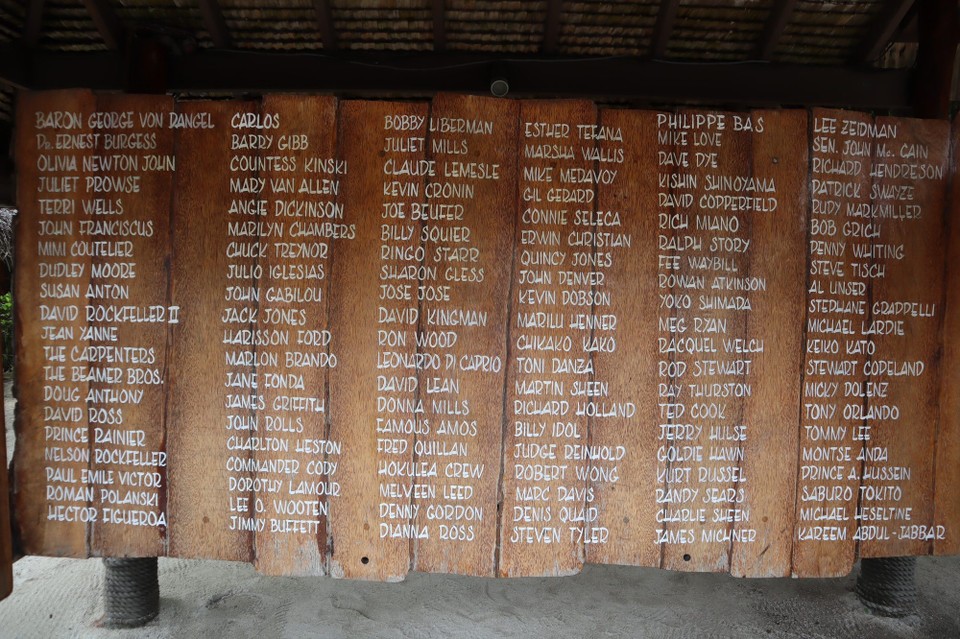 BARON GEORGE VON DANGEL
Dr. ERNEST BURGESS
OLIVIA NEWTON JOHN
JULIET PROWSE
TERRI WELLS
JOHN FRANCISCUS
MIMI COUTELIER
DUDLEY MOORE
SUSAN ANTON
DAVID ROCKFELLER II
JEAN YANNE
THE CARPENTERS
THE BEAMER BROS.
DOUG ANTHONY
DAVID ROSS
PRINCE RAINIER
NELSON ROCKFELLER
PAUL EMILE VICTOR
ROMAN POLANSKI
HECTOR FIGUEROA
CARLOS
BARRY GIBB
COUNTESS KINSKI
MARY VAN ALLEN
ANGIE DICKINSON
MARILYN CHAMBERS
CHUCK TREYNOR
JULIO IGLESIAS
JOHN GABILOU
JACK JONES
HARISSON FORD
MARLON BRANDO
JANE FONDA
JAMES GRIFFITH
JOHN ROLLS
CHARLTON HESTON
COMMANDER CODY
DOROTHY LAMOUR
LEE O. WOOTEN
JIMMY BUFFETT
BOBBY LIBERMAN
JULIET MILLS
CLAUDE LEMESLE
KEVIN CRONIN
JOE BEUFER
BILLY SQUIER
RINGO STARR
SHARON GLESS
JOSE JOSE
DAVID KINGMAN
RON WOOD
LEONARDO DI CAPRIO
DAVID LEAN
DONNA MILLS
FAMOUS AMOS
FRED QUILLAN
HOKULEA CREW
MELVEEN LEED
DENNY GORDON
DIANNA ROSS
ESTHER TEFANA
MARSHA WALLIS
MIKE MEDAVOY
GIL GERARD
CONNIE SELECA
ERWIN CHRISTIAN
QUINCY JONES
JOHN DENVER
KEVIN DOBSON
MARILU HENNER
CHIKAKO KAKO
TONI DANZA
MARTIN SHEEN
RICHARD HOLLAND
BILLY IDOL
JUDGE REINHOLD
ROBERT WONG
MARC DAVIS
DENIS QUAID
STEVEN TYLER
PHILIPPE BAS
MIKE LOVE
DAVE DYE
KISHIN SHINOYAMA
DAVID COPPERFIELD
RICH MIANO
RALPH STORY
FEE WAYBILL
ROWAN ATKINSON
YOKO SHIMADA
MEG RYAN
RACQUEL WELCH
ROD STEWART
RAY THURSTON
TED COOK
JERRY HULSE
GOLDIE HAWN
KURT RUSSEL
RANDY SEARS
CHARLIE SHEEN
JAMES MICHNER
LEE ZEIDMAN
SEN. JOHN Mc. CAIN
RICHARD HENDRESON
PATRICK SWAYZE
RUDY MARKMILLER
BOB GRICH
PENNY WHITING
STEVE TISCH
AL UNSER
STEPHANE GRAPPELLI
MICHAEL LARDIE
KEIKO KATO
STEWART COPELAND
MICKY DOLENZ
TONY ORLANDO
TOMMY LEE
MONTSE ANDA
PRINCE A. HUSSEIN
SABURO TOKITO
MICHAEL HESELTINE
KAREEM ABDUL-JABBAR